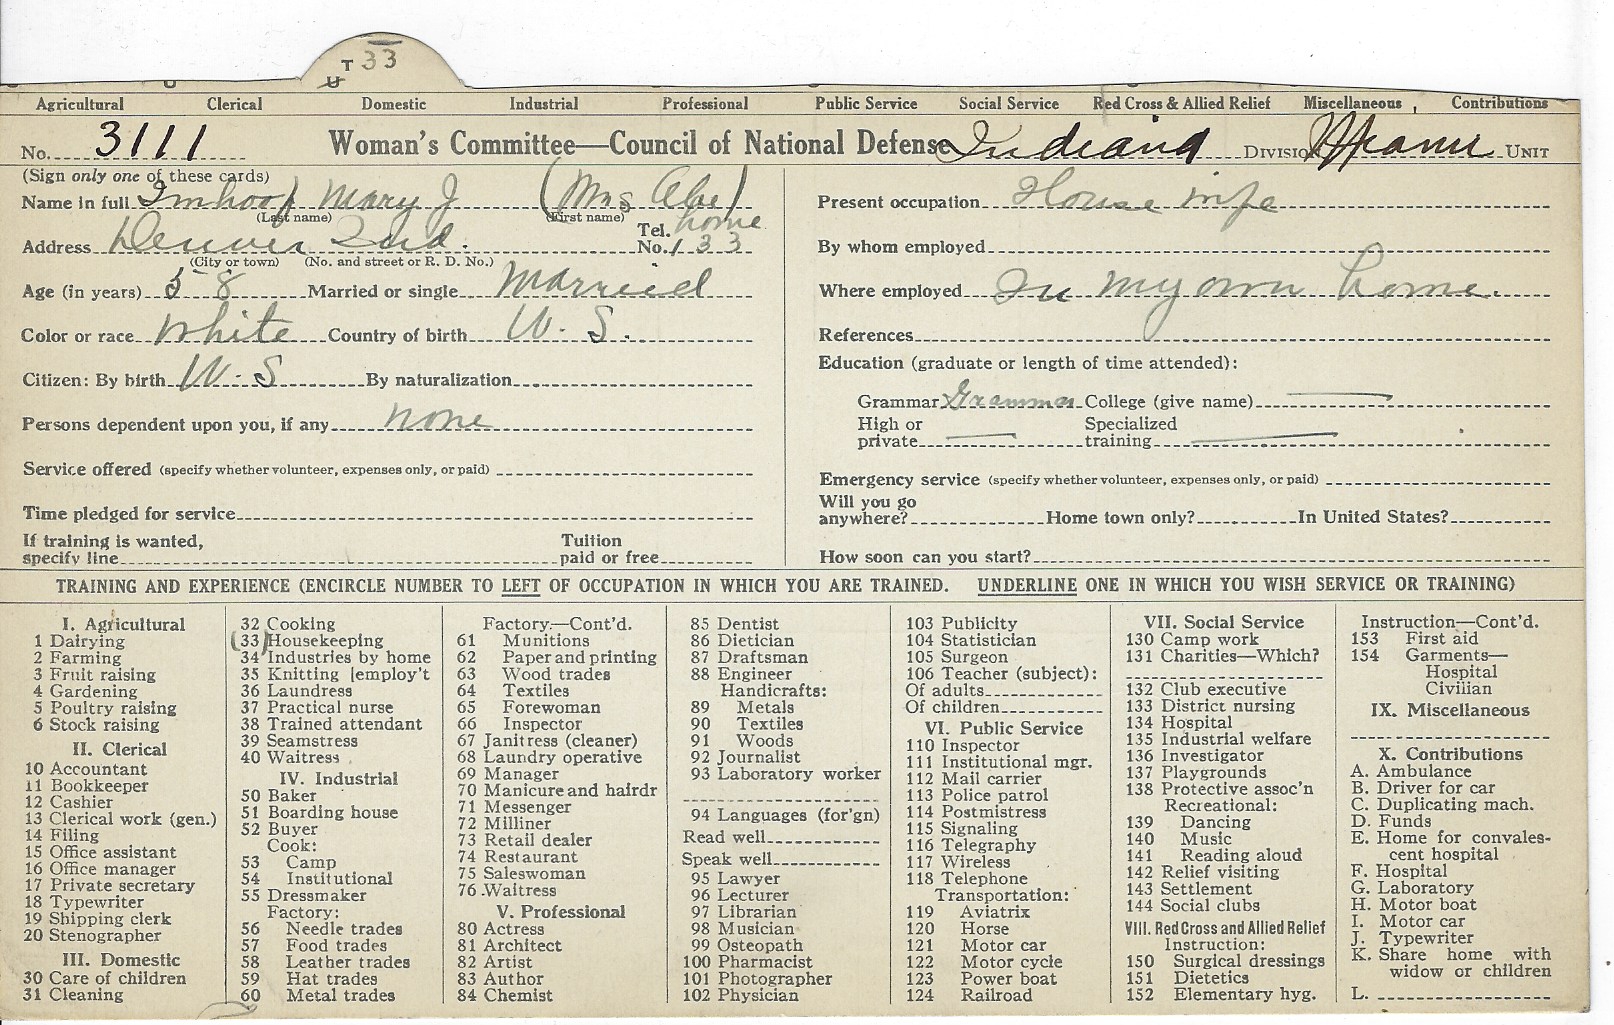 T 33
U
Agricultural Clerical Domestic Industrial Professional Public Service Social Service Red Cross & Allied Relief Miscellaneous Contributions
No. 3111 Woman's Committee—Council of National Defense Indiana DIVISION Miami UNIT
(Sign only one of these cards)
Name in full Imhoof Mary J (Mrs Abe)
(Last name) (First name)
Address Denver Ind. Tel. No. home 133
(City or town) (No. and street or R. D. No.)
Age (in years) 58 Married or single Married
Color or race White Country of birth U. S.
Citizen: By birth U. S By naturalization
Persons dependent upon you, if any none
Service offered (specify whether volunteer, expenses only, or paid)
Time pledged for service
If training is wanted, specify line Tuition paid or free
Present occupation House wife
By whom employed
Where employed In my own home.
References
Education (graduate or length of time attended):
Grammar Grammar College (give name)
High or private Specialized training
Emergency service (specify whether volunteer, expenses only, or paid)
Will you go anywhere? Home town only? In United States?
How soon can you start?
TRAINING AND EXPERIENCE (ENCIRCLE NUMBER TO LEFT OF OCCUPATION IN WHICH YOU ARE TRAINED. UNDERLINE ONE IN WHICH YOU WISH SERVICE OR TRAINING)
I. Agricultural
1 Dairying
2 Farming
3 Fruit raising
4 Gardening
5 Poultry raising
6 Stock raising
II. Clerical
10 Accountant
11 Bookkeeper
12 Cashier
13 Clerical work (gen.)
14 Filing
15 Office assistant
16 Office manager
17 Private secretary
18 Typewriter
19 Shipping clerk
20 Stenographer
III. Domestic
30 Care of children
31 Cleaning
32 Cooking
(33) Housekeeping
34 Industries by home
35 Knitting [employ't
36 Laundress
37 Practical nurse
38 Trained attendant
39 Seamstress
40 Waitress
IV. Industrial
50 Baker
51 Boarding house
52 Buyer
Cook:
53 Camp
54 Institutional
55 Dressmaker
Factory:
56 Needle trades
57 Food trades
58 Leather trades
59 Hat trades
60 Metal trades
Factory.—Cont'd.
61 Munitions
62 Paper and printing
63 Wood trades
64 Textiles
65 Forewoman
66 Inspector
67 Janitress (cleaner)
68 Laundry operative
69 Manager
70 Manicure and hairdr
71 Messenger
72 Milliner
73 Retail dealer
74 Restaurant
75 Saleswoman
76 Waitress
V. Professional
80 Actress
81 Architect
82 Artist
83 Author
84 Chemist
85 Dentist
86 Dietician
87 Draftsman
88 Engineer
Handicrafts:
89 Metals
90 Textiles
91 Woods
92 Journalist
93 Laboratory worker
94 Languages (for'gn)
Read well
Speak well
95 Lawyer
96 Lecturer
97 Librarian
98 Musician
99 Osteopath
100 Pharmacist
101 Photographer
102 Physician
103 Publicity
104 Statistician
105 Surgeon
106 Teacher (subject):
Of adults
Of children
VI. Public Service
110 Inspector
111 Institutional mgr.
112 Mail carrier
113 Police patrol
114 Postmistress
115 Signaling
116 Telegraphy
117 Wireless
118 Telephone
Transportation:
119 Aviatrix
120 Horse
121 Motor car
122 Motor cycle
123 Power boat
124 Railroad
VII. Social Service
130 Camp work
131 Charities—Which?
132 Club executive
133 District nursing
134 Hospital
135 Industrial welfare
136 Investigator
137 Playgrounds
138 Protective assoc'n
Recreational:
139 Dancing
140 Music
141 Reading aloud
142 Relief visiting
143 Settlement
144 Social clubs
VIII. Red Cross and Allied Relief
Instruction:
150 Surgical dressings
151 Dietetics
152 Elementary hyg.
Instruction—Cont'd.
153 First aid
154 Garments—
Hospital
Civilian
IX. Miscellaneous
X. Contributions
A. Ambulance
B. Driver for car
C. Duplicating mach.
D. Funds
E. Home for convales-
cent hospital
F. Hospital
G. Laboratory
H. Motor boat
I. Motor car
J. Typewriter
K. Share home with
widow or children
L.